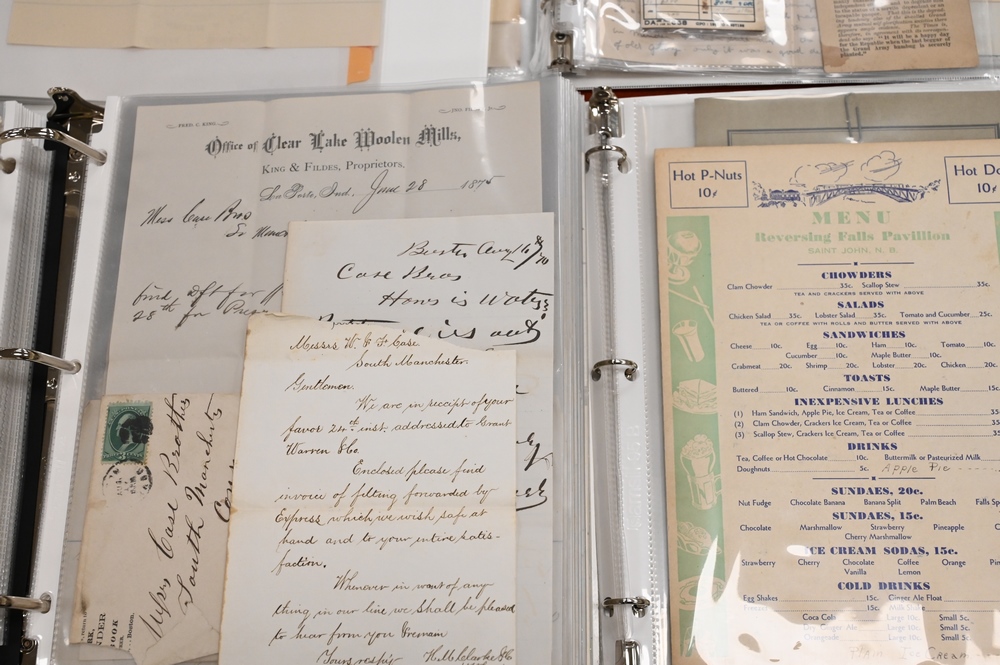 DAM
of old
It will be a happy day
for the Republic when the last beggar of
the Grand Army humbug is securely
planted."
FRED C. KING.
Office of Clear Lake Woolen Mills,
KING & FILDES, Proprietors.
La Porte, Ind., June 28 1875
Mess Case Bros
So Man
find Dft for
28th for
Aug 16
Case Bros
How is Water
out
Messrs W. & F. Case
South Manchester.
Gentlemen.
We are in receipt of your
favor 24th inst. addressed to Grant
Warren & Co.
Enclosed please find
invoice of felting forwarded by
Express which we wish safe at
hand and to your entire satis-
faction.
Whenever in want of any
thing in our line we shall be pleased
to hear from you & remain
Yours respy
H. M. Clarke & Co
Messrs Case Brothers
South Manchester
Con
Boston.
Hot P-Nuts
10¢
Hot Do
10¢
MENU
Reversing Falls Pavillion
SAINT JOHN, N. B.
CHOWDERS
Clam Chowder 35c. Scallop Stew 35c.
TEA AND CRACKERS SERVED WITH ABOVE
SALADS
Chicken Salad 35c. Lobster Salad 35c. Tomato and Cucumber 25c.
TEA OR COFFEE WITH ROLLS AND BUTTER SERVED WITH ABOVE
SANDWICHES
Cheese 10c. Egg 10c. Ham 10c. Tomato 10c.
Cucumber 10c. Maple Butter 10c.
Crabmeat 20c. Shrimp 20c. Lobster 20c. Chicken 20c.
TOASTS
Buttered 10c. Cinnamon 15c. Maple Butter 15c.
INEXPENSIVE LUNCHES
(1) Ham Sandwich, Apple Pie, Ice Cream, Tea or Coffee 35
(2) Clam Chowder, Crackers Ice Cream, Tea or Coffee 35
(3) Scallop Stew, Crackers Ice Cream, Tea or Coffee 35
DRINKS
Tea, Coffee or Hot Chocolate 10c. Buttermilk or Pasteurized Milk
Doughnuts 5c. Apple Pie
SUNDAES, 20c.
Nut Fudge Chocolate Banana Banana Split Palm Beach Falls Sp
SUNDAES, 15c.
Chocolate Marshmallow Strawberry Pineapple
Cherry Marshmallow
ICE CREAM SODAS, 15c.
Strawberry Cherry Chocolate Coffee Orange Pin
Vanilla Lemon
COLD DRINKS
Egg Shakes 15c. Ginger Ale Float
15c. Milk Shake
Coca Cola Large 10c. Small 5c.
Dry Ginger Ale Large 10c. Small 5c.
Orangeade Large 10c. Small 5c.
Plain Ice Cream